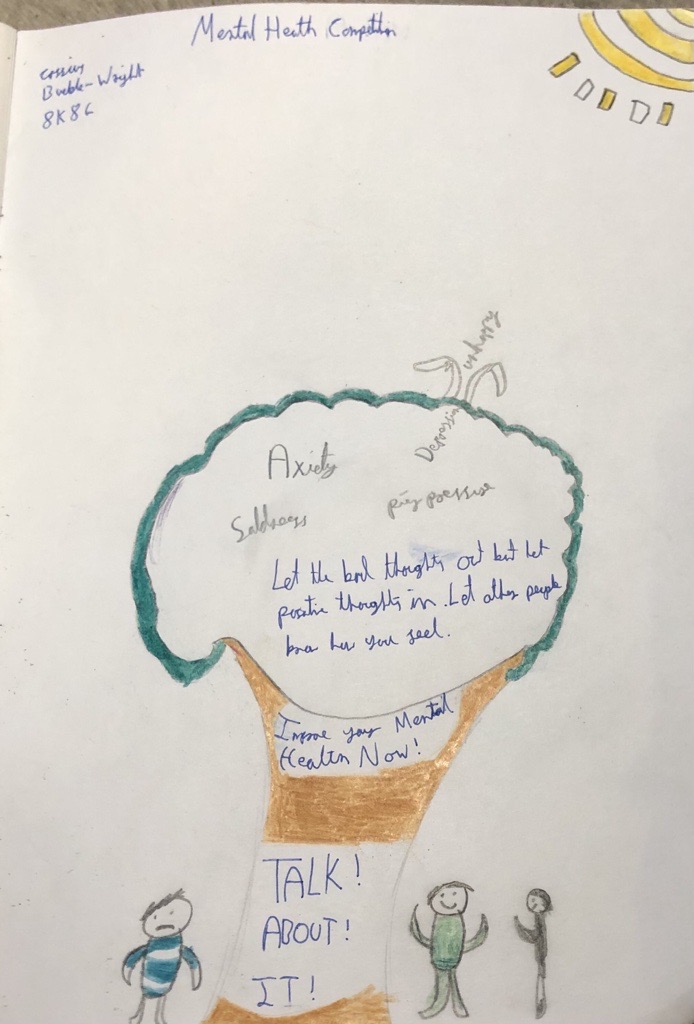 Mental Heath Competition
Buckle-Wright
unhappy
Depression
Axiety
Saldness
Let the bad thoughts out but let
positive thoughts in. Let other people
know how you feel.
Improve your Mental
Health Now!
TALK!
ABOUT!
IT!